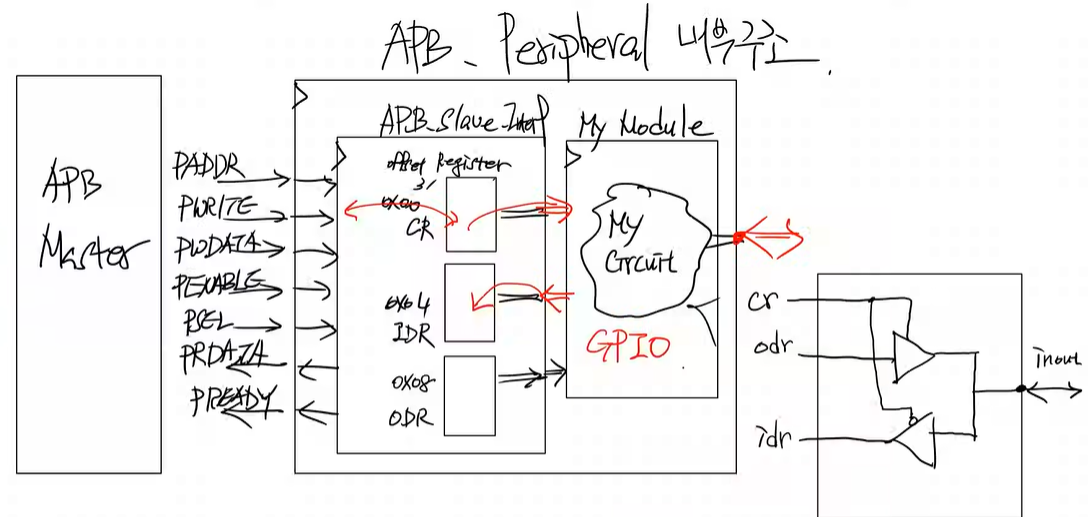 APB_ Peripheral 내부구조.
APB Master
PADDR
PWRITE
PWDATA
PENABLE
PSEL
PRDATA
PREADY
APB_Slave_Interf
offset Register
0x00
CR
0x04
IDR
0x08
ODR
My Module
My
Circuit
GPIO
cr
odr
idr
inout